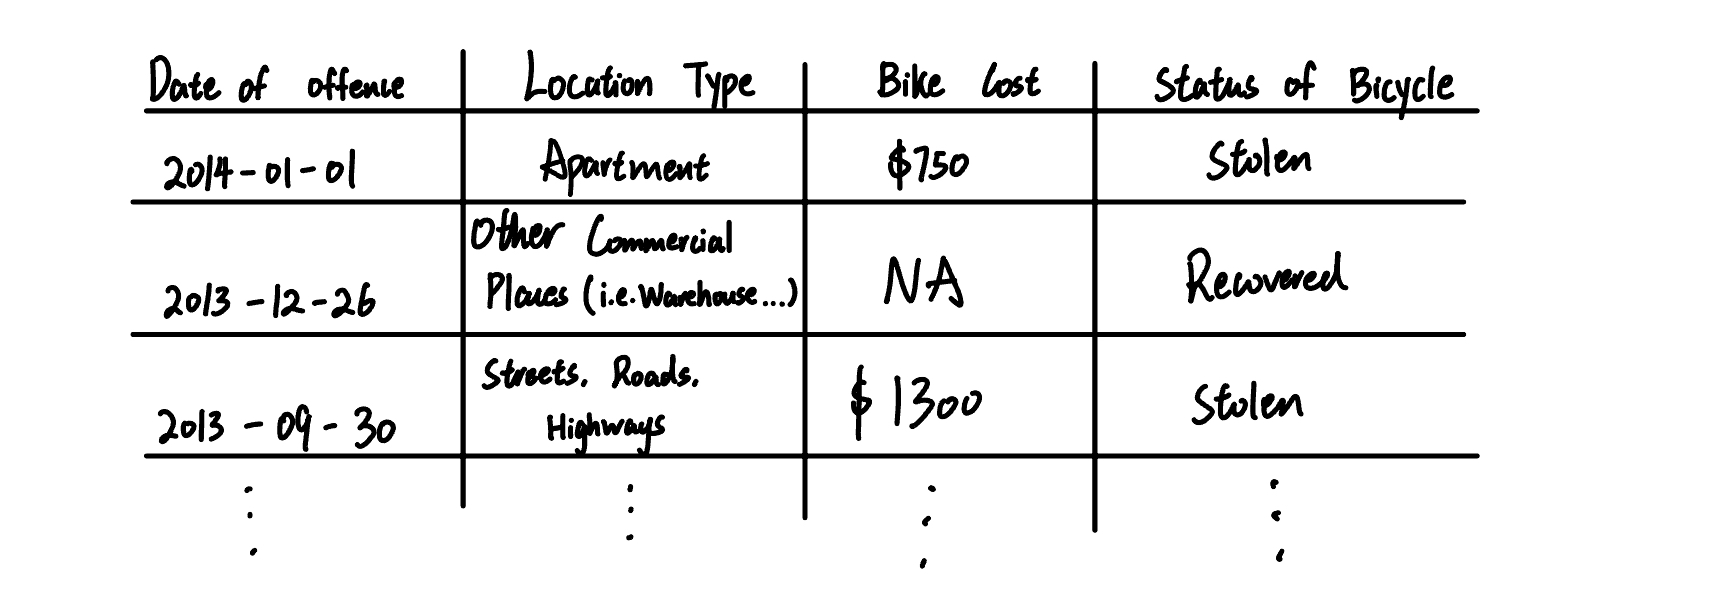 Date of offence Location Type Bike Cost Status of Bicycle
2014-01-01 Apartment $750 Stolen
Other Commercial
2013-12-26 Places (i.e. Warehouse...) NA Recovered
Streets, Roads,
2013-09-30 Highways $1300 Stolen